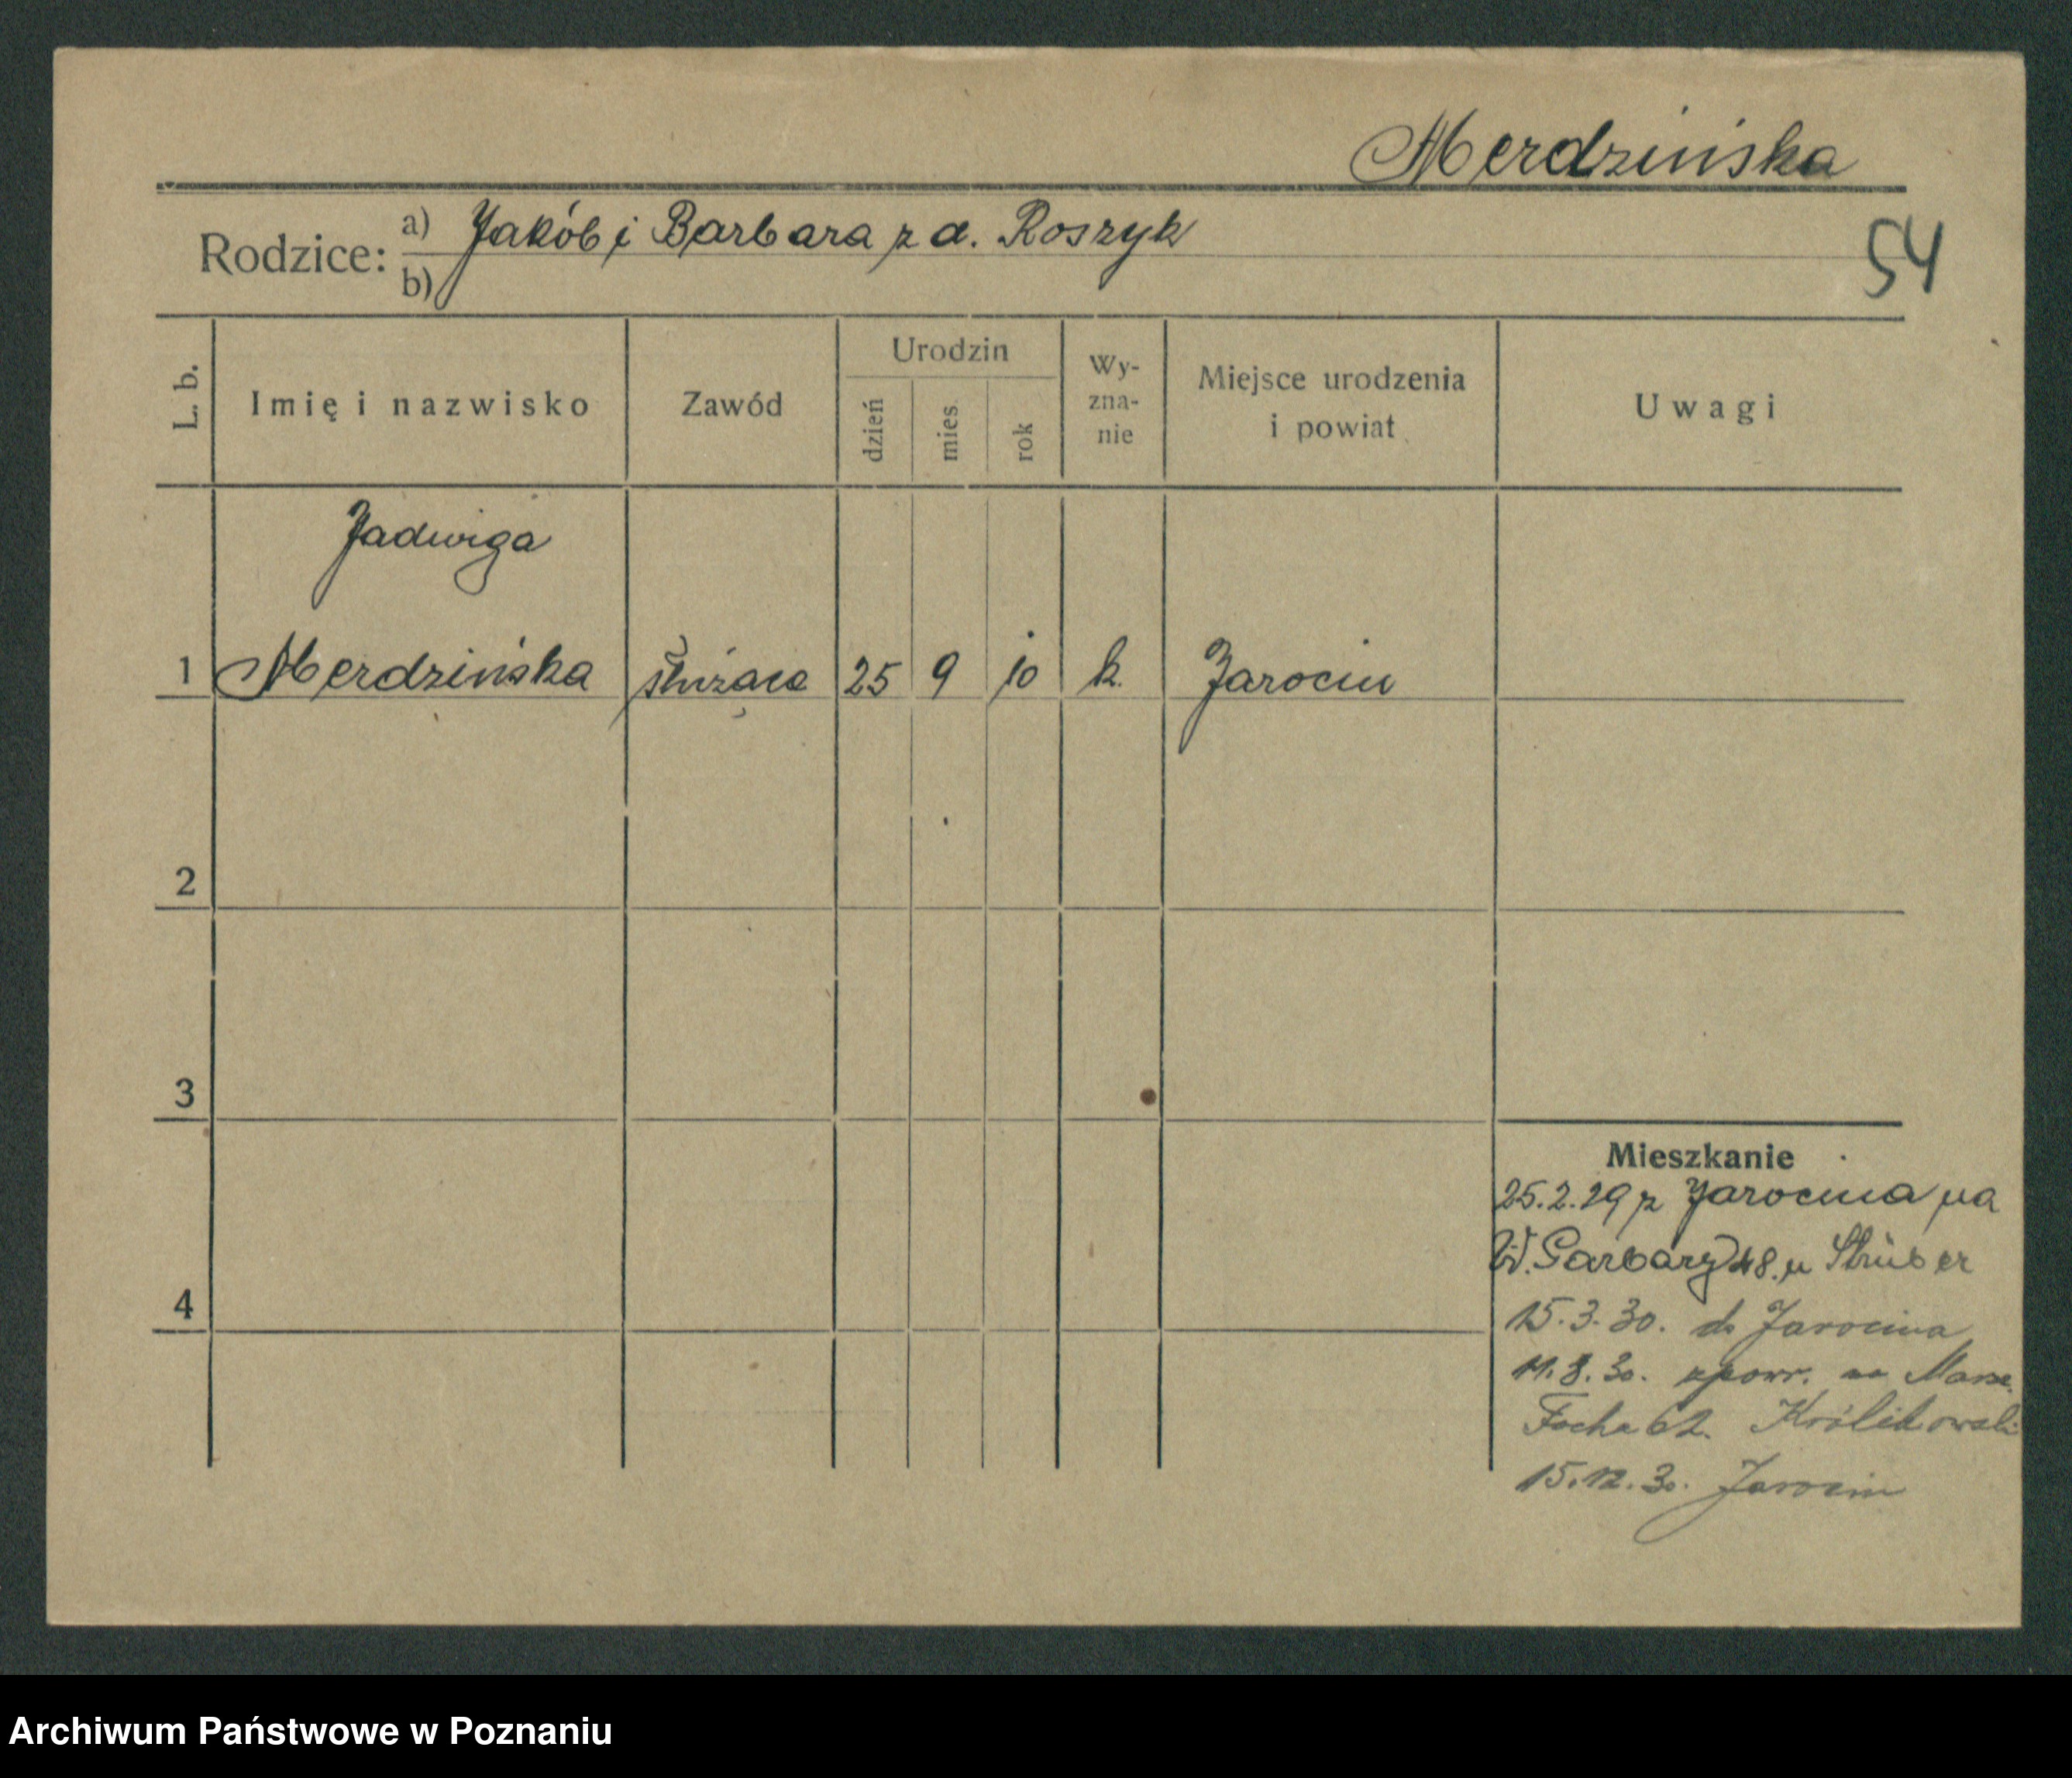 Merdzińska
Rodzice: a) Jakób i Barbara z d. Roszyk
b)
54
L. b.
Imię i nazwisko
Zawód
Urodzin
dzień
mies.
rok
Wy-
zna-
nie
Miejsce urodzenia
i powiat
Uwagi
Jadwiga
1 Merdzińska służąca 25 9 10 k. Jarocin
2
3
4
Mieszkanie
25.2.29 z Jarocina na
W. Garbary 48. u Strüber
15.3.30. do Jarocina
11.8.30. zpowr. na Marsz.
Focha 62. Królikowski
15.12.30. Jarocin
Archiwum Państwowe w Poznaniu